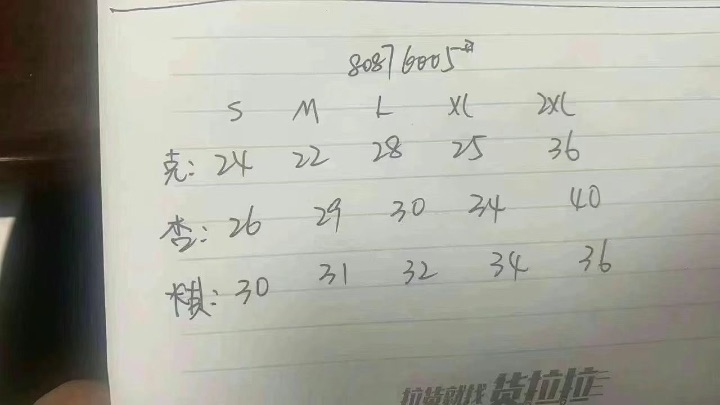 80876005#
S M L XL 2XL
克: 24 22 28 25 36
杏: 26 29 30 34 40
棋: 30 31 32 34 36
拉货就找 货拉拉